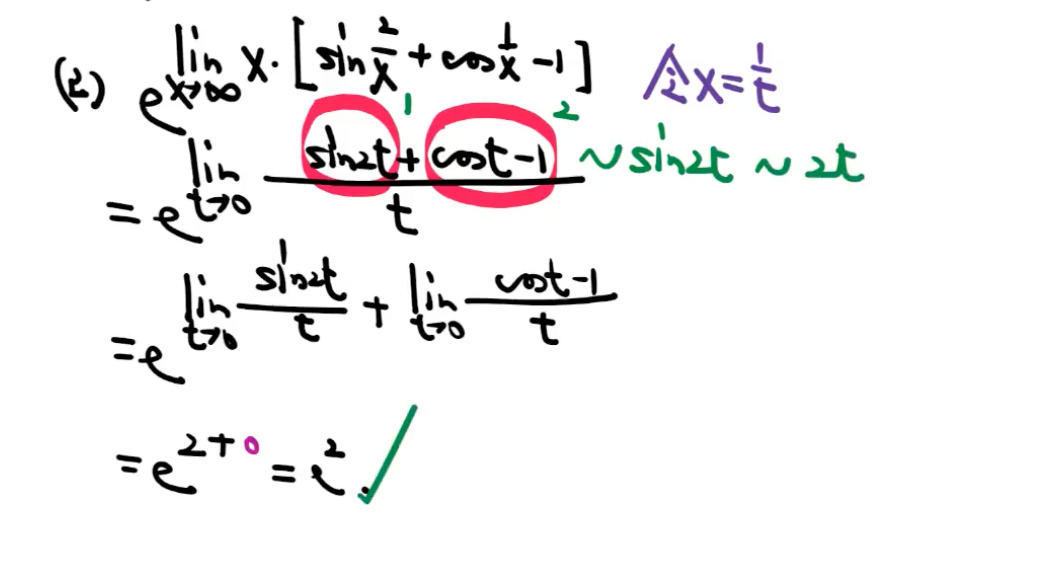 (2) e^{lim_{x→∞} x·[sin 2/x + cos 1/x -1]} 令x=1/t
1 2
= e^{lim_{t→0} (sin2t + cost-1)/t} ~ sin2t ~ 2t
= e^{lim_{t→0} sin2t/t + lim_{t→0} cost-1/t}
= e^{2+0} = e^2.